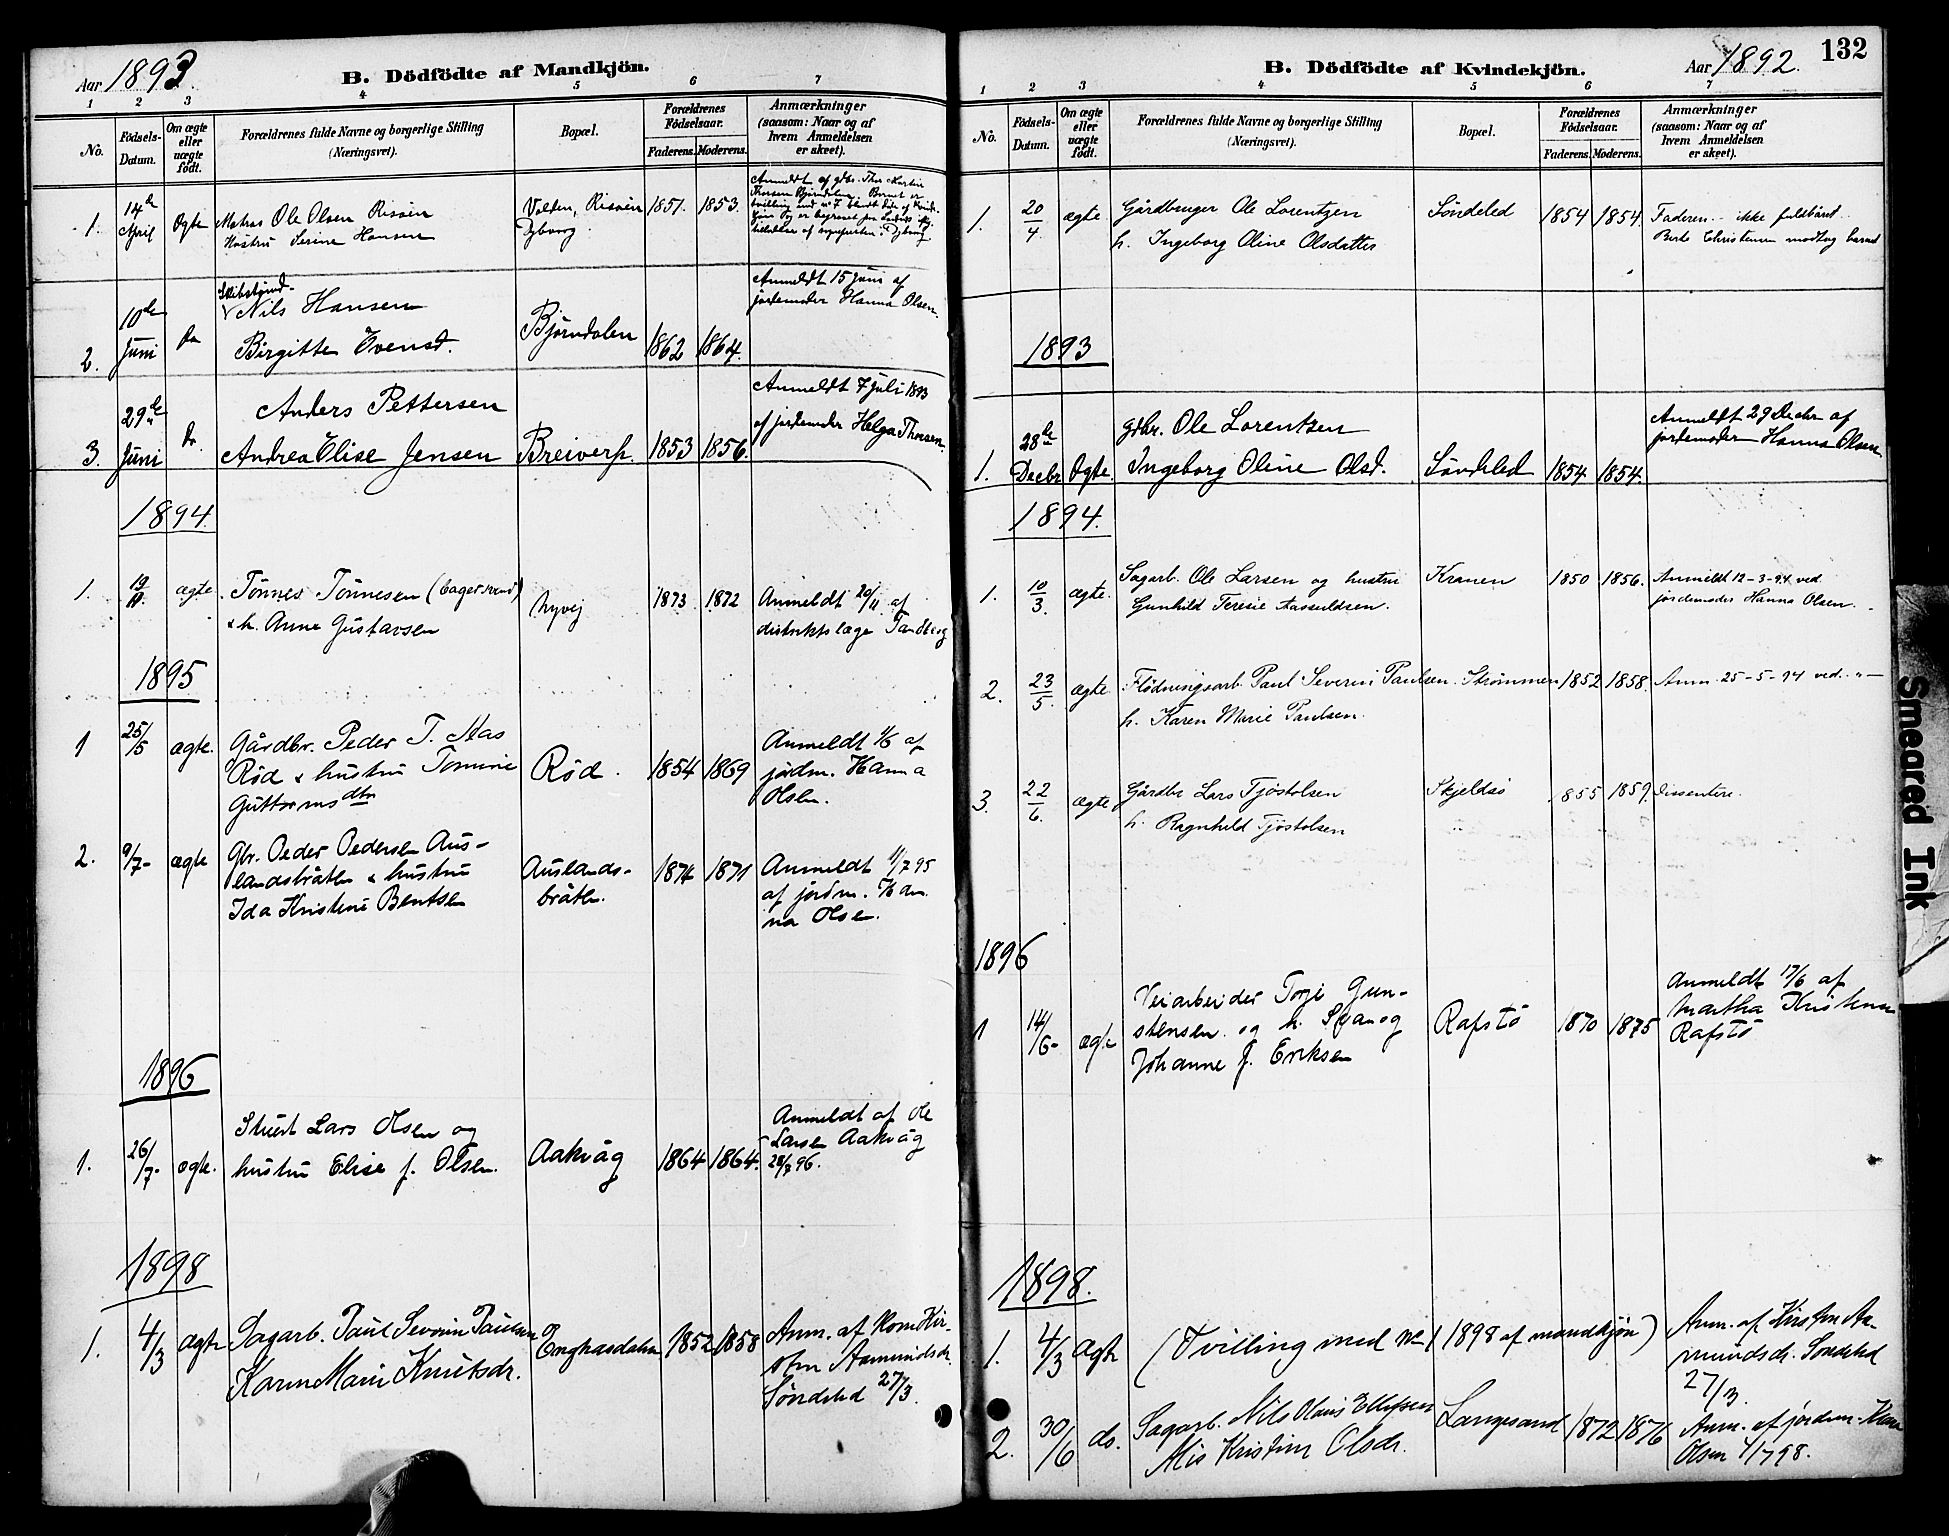 Aar 1893.
B. Dödfödte af Mandkjön.
1 2 3 4 5 6 7
No.
Födsels-Datum.
Om ægte eller uægte födt.
Forældrenes fulde Navne og borgerlige Stilling (Næringsvei).
Bopæl.
Forældrenes Födselsaar.
Faderens. Moderens.
Anmærkninger (saasom: Naar og af hvem Anmeldelsen er skeet).
1. 14de April Ægte Matros Ole Olsen Risøen Volden, Risøen 1851. 1853.
Hustru Serine Hansen Dybvaag.
2. 10de Juni Do Nils Hansen Bjørndalen 1862 1864. Anmeldt 15 Juni af
Birgitte Evensd. jordemoder Hanna Olsen.
3. 29de Juni Do. Anders Pettersen Anmeldt 7 Juli 1893
Andrea Elise Jensen Breiverp. 1853 1856. af jordemoder Helga Thorsen.
1894.
1. 19/11. ægte Tønnes Tønnesen (bagersvend) Nyvej 1873 1872 Anmeldt 20/11 af
& h. Anne Gustavsen distriktslæge Tandberg
1895
1 25/5 ægte. Gårdbr. Peder T. Aas Anmeldt 1/6 af
Rød & hustru Tomine Rød. 1854 1869 jordm. Hanna
Guttormsdtr Olsen.
2. 9/7- ægte Gbr. Peder Pedersen Aus- Auslands- 1874 1871 Anmeldt 11/7 95
landsbråten & hustru bråten. af jordm. Han-
Ida Kristine Bentsen na Olsen.
1896
1. 26/7- ægte. Stuert Lars Olsen og Aakvåg 1864 1864. Anmeldt af Ole
hustru Elise f. Olsen. Larsen Aakvåg
28/7 96.
1898
1. 4/3 ægte Sagarb. Paul Severin Paulsen Enghasdalen 1852 1858 Anm. af Kone Kir-
Karen Marie Knutsdr. sten Aamundsdr.
Søndeled 27/3.
Aar 1892. 132
B. Dödfödte af Kvindekjön.
1 2 3 4 5 6 7
No.
Födsels-Datum.
Om ægte eller uægte födt.
Forældrenes fulde Navne og borgerlige Stilling (Næringsvei).
Bopæl.
Forældrenes Födselsaar.
Faderens. Moderens.
Anmærkninger (saasom: Naar og af hvem Anmeldelsen er skeet).
1. 20/4. ægte Gårdbruger Ole Lorentzen Søndeled 1854 1854. Faderen. - ikke fuldbåret.
h. Ingeborg Oline Olsdatter Berte Christensen modtog barnet
1893
1. 28de Decbr Ægte. Gdbr. Ole Lorentzen Anmeldt 29 Decbr af
Ingeborg Oline Olsd. Søndeled 1854 1854. jordemoder Hanna Olsen
1894.
1. 10/3. ægte. Sagarb. Ole Larsen og hustru Kranen 1850 1856. Anmeldt 12-3-94 ved
Gunhild Teresie Aasuldsen. jordemoder Hanna Olsen.
2. 23/5. ægte. Flødningsarb. Paul Severin Paulsen. Strømmen 1852 1858. Anm. 25-5-94 ved. -"-
h. Karen Marie Paulsen.
3. 22/6. ægte Gårdbr Lars Tjøstolsen Skjeldsø 1855 1859. Dissentere.
h. Ragnhild Tjøstolsen
1896
1 14/6- ægte Veiarbeider Torje Gun- Rafstø 1870 1875 Anmeldt 17/6 af
stensen og h. Svanog Martha Kristensen
Johanne f. Eriksen Rafstø
1898.
1. 4/3 ægte (Tvilling med no 1 1898 af mandkjøn) Anm. af Kirsten Aa-
mundsdr. Søndeled
27/3
2. 30/6 do. Sagarb. Nils Olaus Ellefsen Langesand 1872 1876 Anm. af jordm. Hana
Kristine Olsdr. Olsen 1/7 98.
Smeared Ink